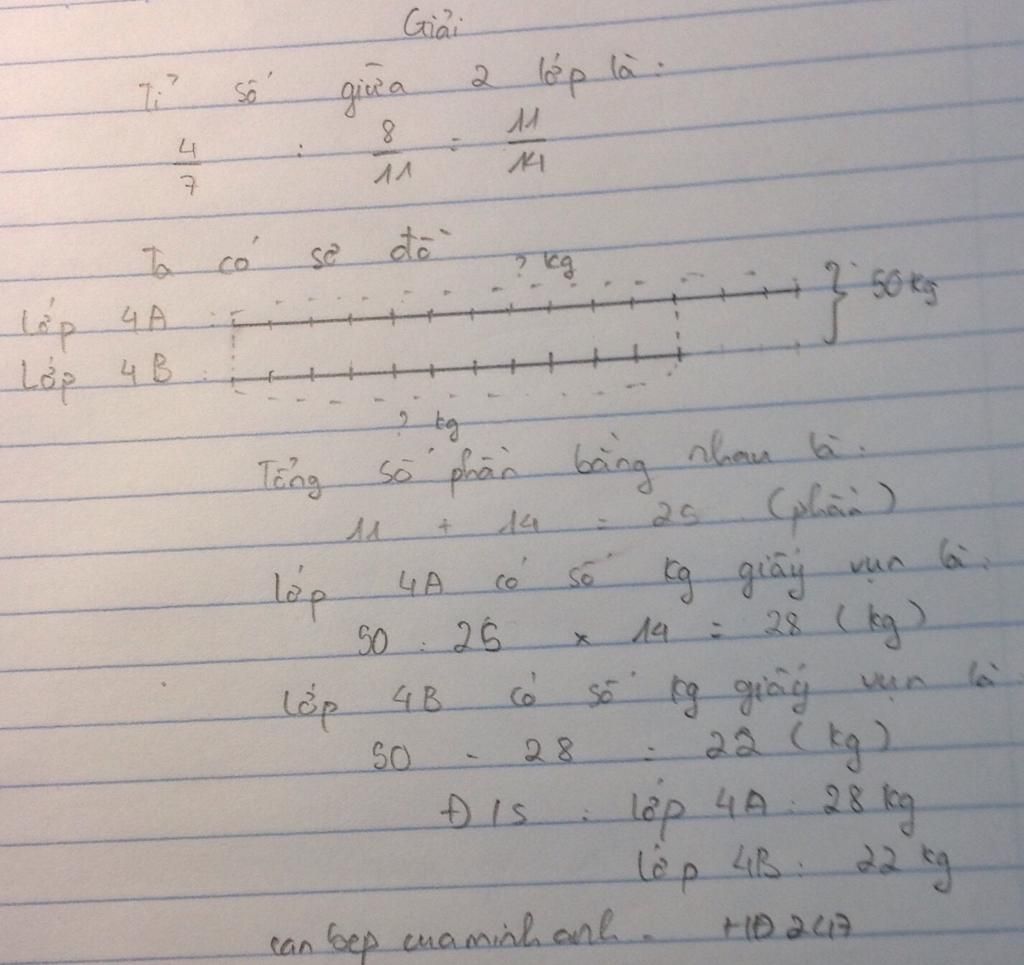 Giải
Tỉ số giữa 2 lớp là:
4/7 : 8/11 = 11/14
Ta có sơ đồ
? kg
Lớp 4A : } 50 kg
Lớp 4B :
? kg
Tổng số phần bằng nhau là:
11 + 14 = 25 (phần)
Lớp 4A có số kg giấy vụn là:
50 : 25 x 14 = 28 (kg)
Lớp 4B có số kg giấy vụn là
50 - 28 = 22 (kg)
Đ/S : lớp 4A : 28 kg
lớp 4B : 22 kg
can bep cua minh anh.